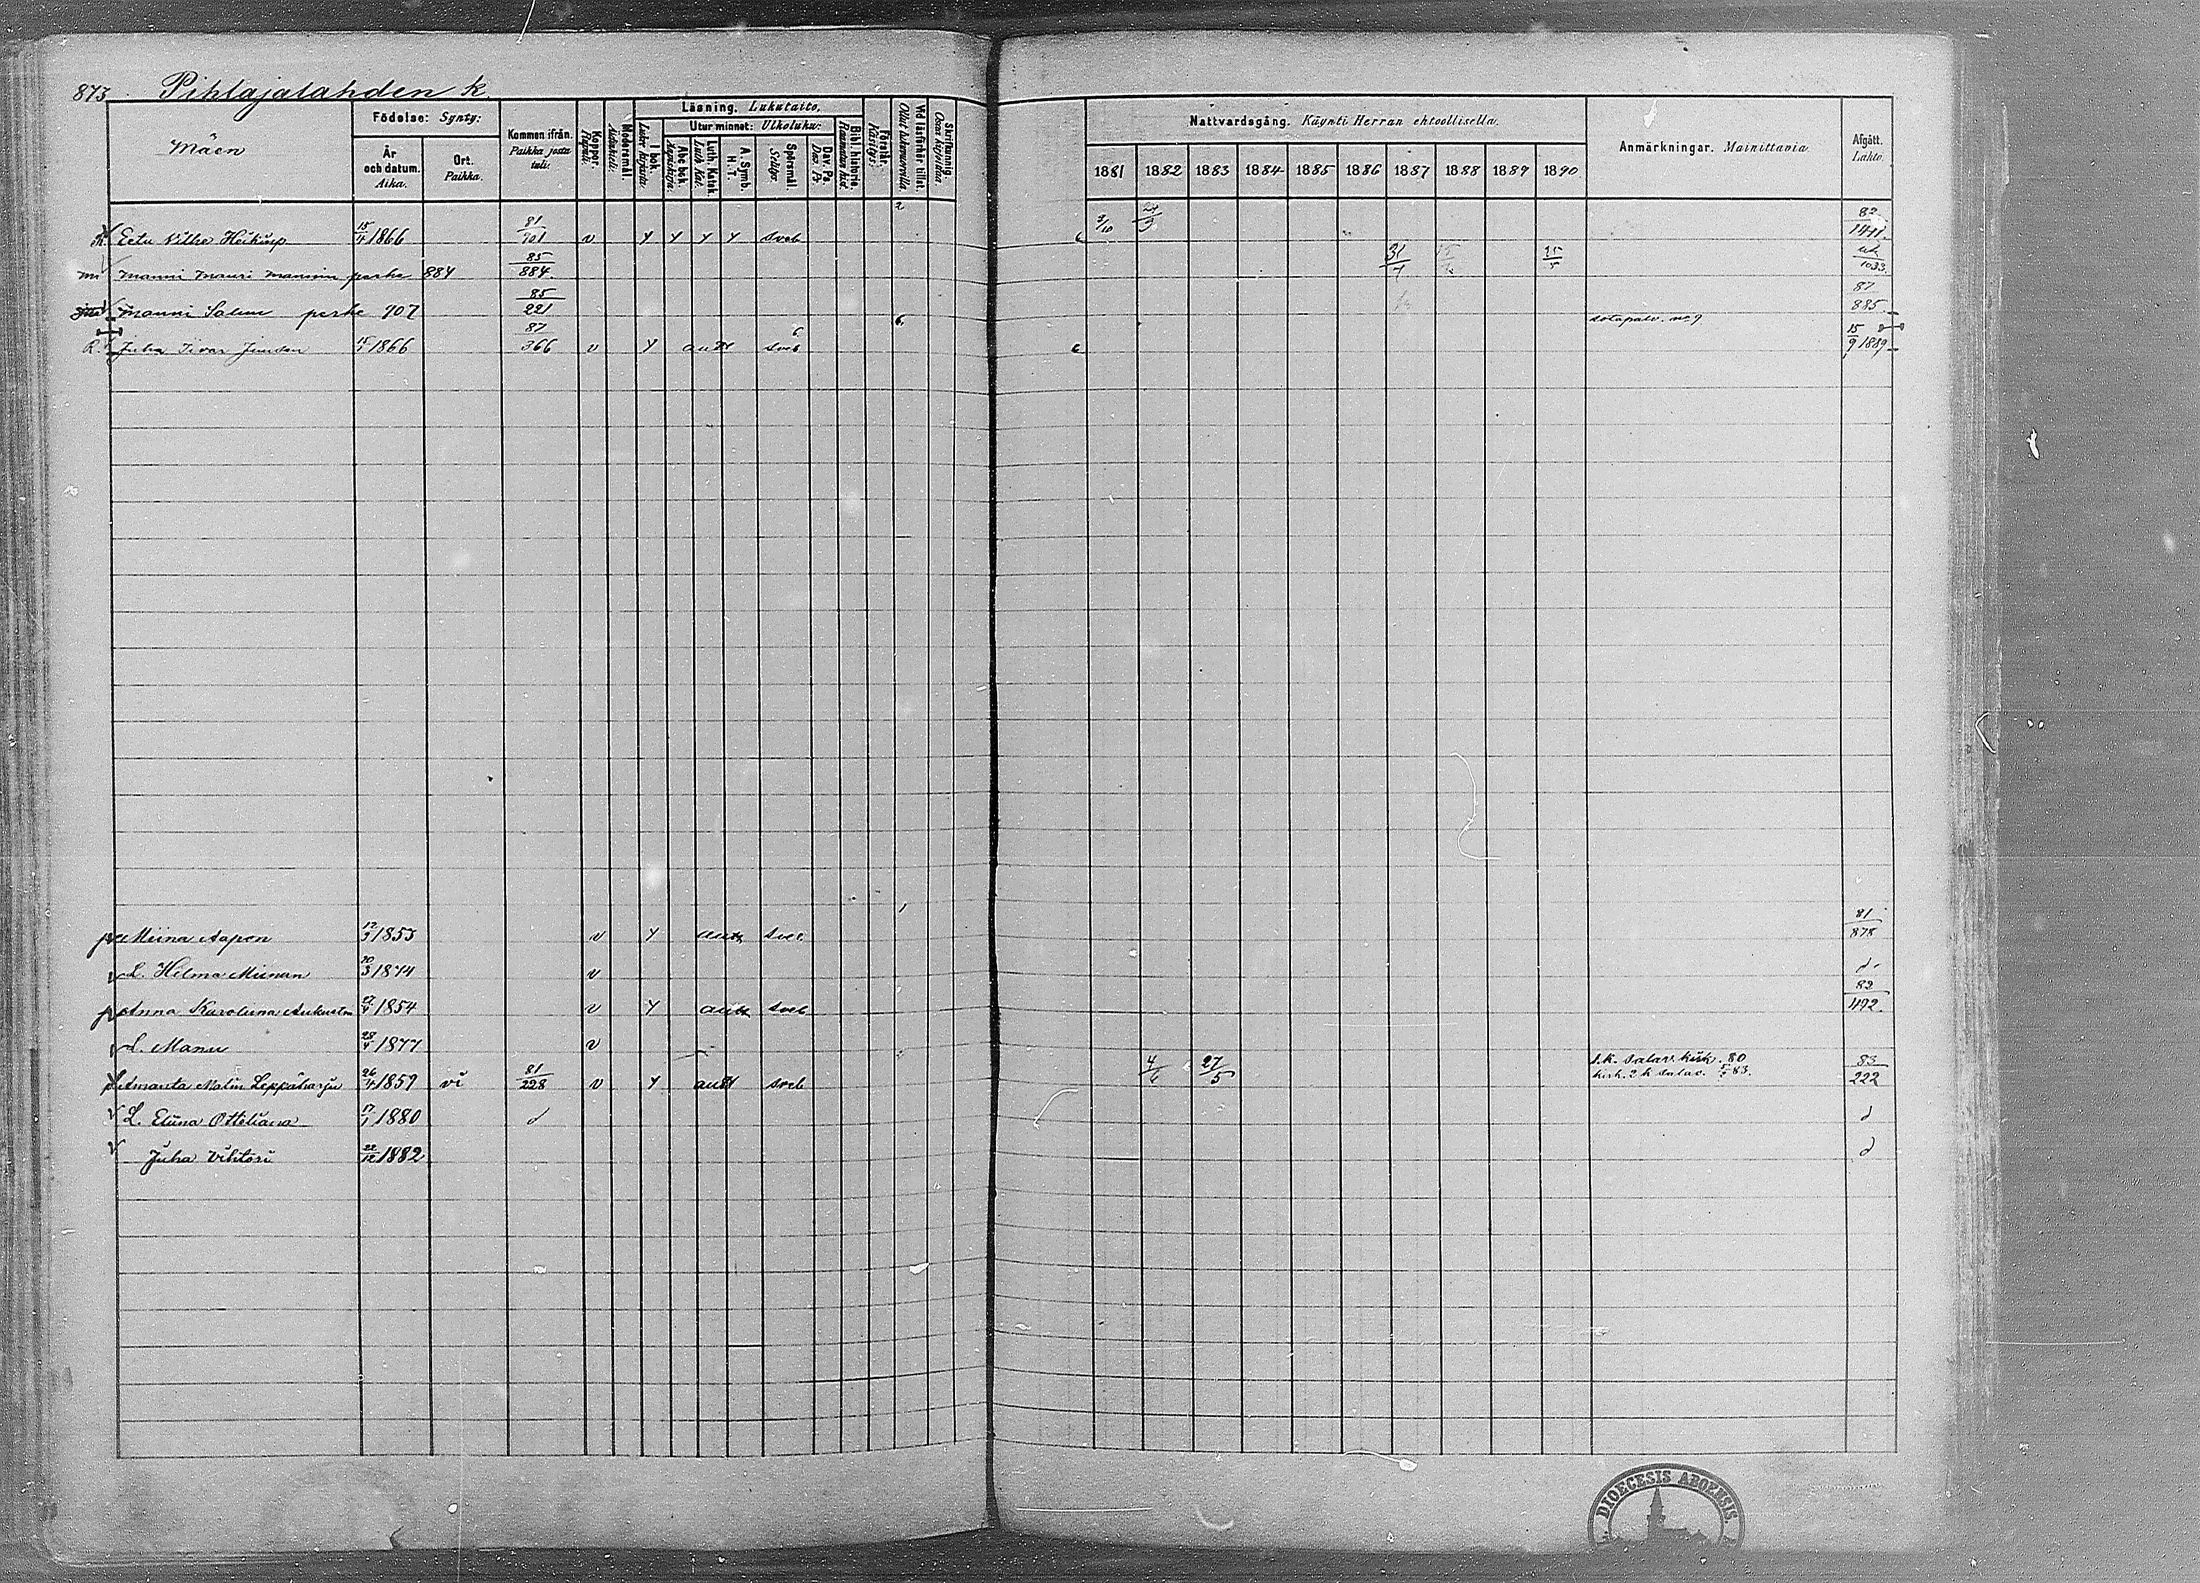 873 Pihlajalahden k.
Mäen
Födelse: Synty:
År och datum. Aika.
Ort. Paikka.
Kommen ifrån. Paikka josta tuli.
Koppor. Rupuli.
Modersmål. Äidinkieli.
Läsning. Lukutaito.
I bok.
Utur minnet: Ulkoluku:
Abc bok. Aapiskirja
Luth. Katek. Luth. Kat.
A. Symb. H. T.
Spörsmål. Selitys.
Dav. Ps. Dav. Ps
Bibl. historie.
Förstår. Käsitys:
Vid läsförhör tillst.
Skriftkunnig.
Nattvardsgång. Käynti Herran ehtoollisella.
1881 1882 1883 1884 1885 1886 1887 1888 1889 1890
Anmärkningar. Mainittavia.
Afgått. Lahto.
2
R. Eetu Vilhe Heikinp 15/4 1866 81/901 v y y y y sveb 6 9/10 82/1411
Manni Mauri Mannin perhe 884 85/884 31/7 25/5 1033
Manni Salim perhe 907 85/221 87/885
6
R. Juha Iivar 1866 87/366 v y sveb 6 sotapalv. no 9 15/9 1889
1
Miina Aapon 12/3 1853 v y sveb 81/878
L. Helma Miinan 20/3 1874 v d
Anna Karoliina 1854 v y sveb 82/472
L. Manu 28/4 1877 v
Amanta Malin Leppäharju 26/4 1859 vi 81/228 v y sveb 4/6 27/5 1.k. salav. kirk. 80 83/222
kirk. 2 k salav. 83.
L. Eliina Ottiliana 17/1 1880 d d
Juha Vihtori 22/12 1882 d
DIOECESIS ABOENSIS.